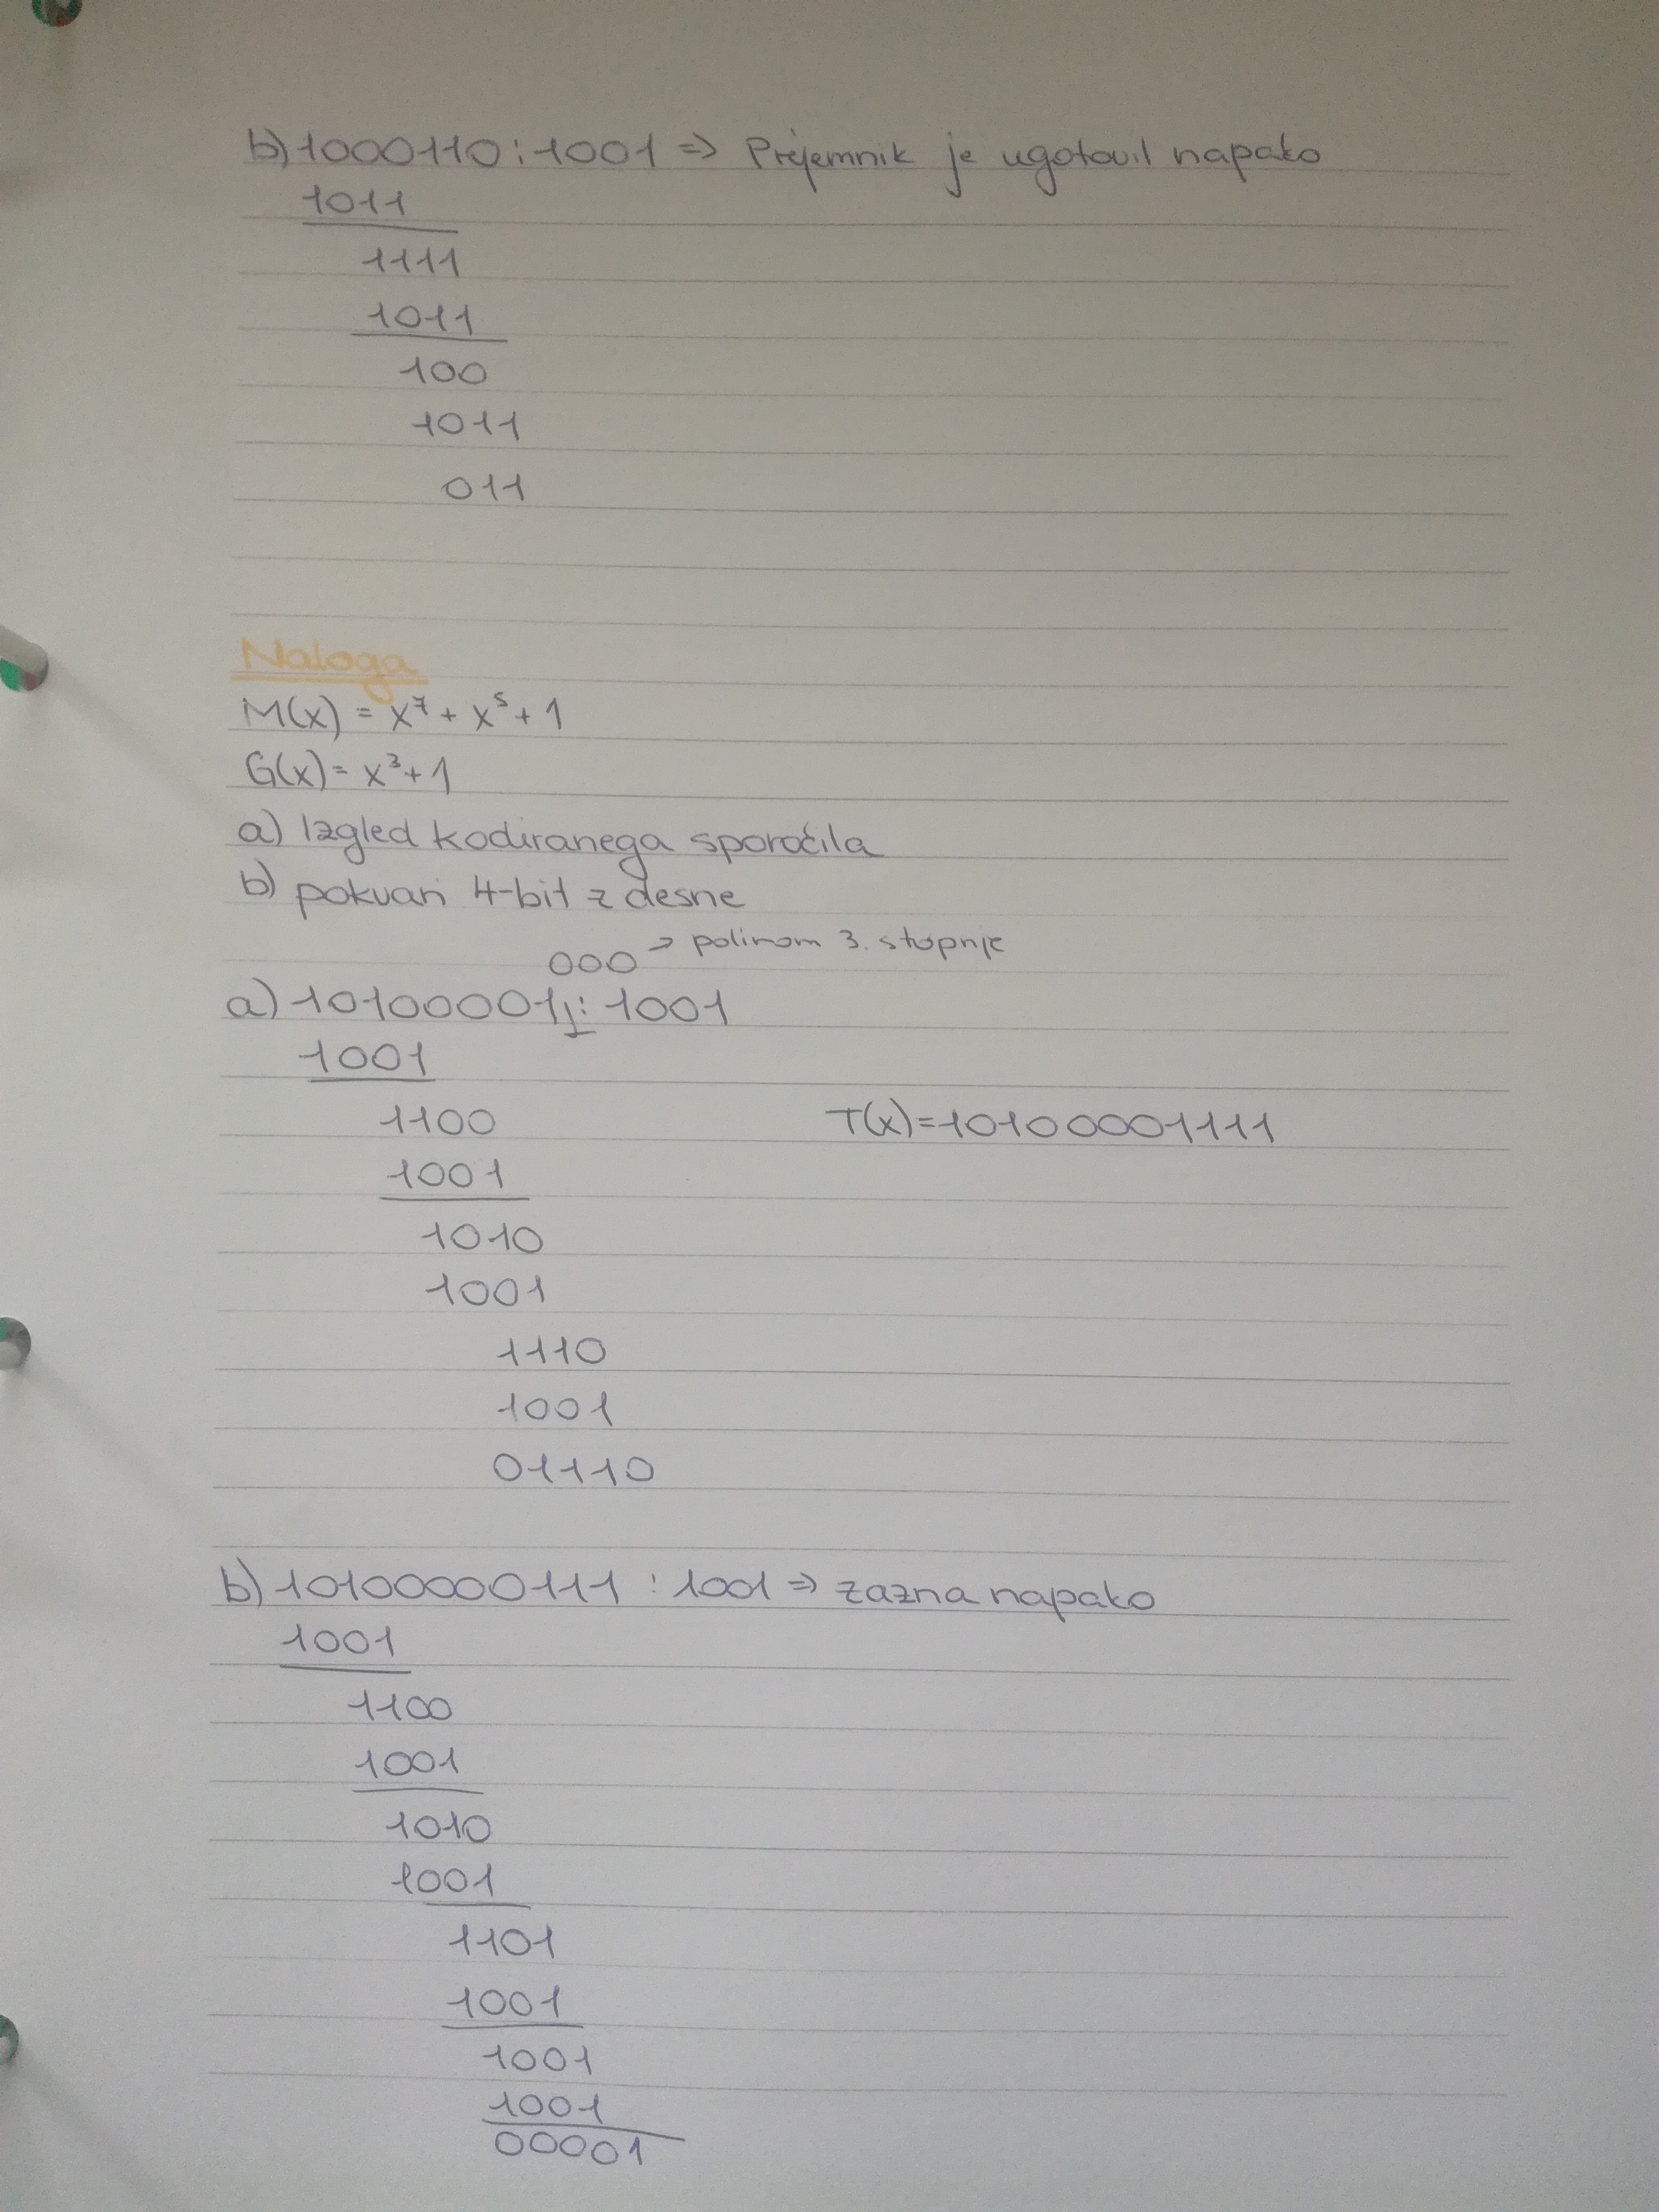 b) 1000110 : 1001 => Prejemnik je ugotovil napako
1011
1111
1011
100
1011
011
Naloga
M(x) = x⁷ + x⁵ + 1
G(x) = x³ + 1
a) Izgled kodiranega sporočila
b) pokvari 4-bit z desne
000 -> polinom 3. stopnje
a) 10100001 : 1001
1001
1100
T(x) = 10100001111
1001
1010
1001
1110
1001
01110
b) 10100000111 : 1001 => zazna napako
1001
1100
1001
1010
1001
1101
1001
1001
1001
00001